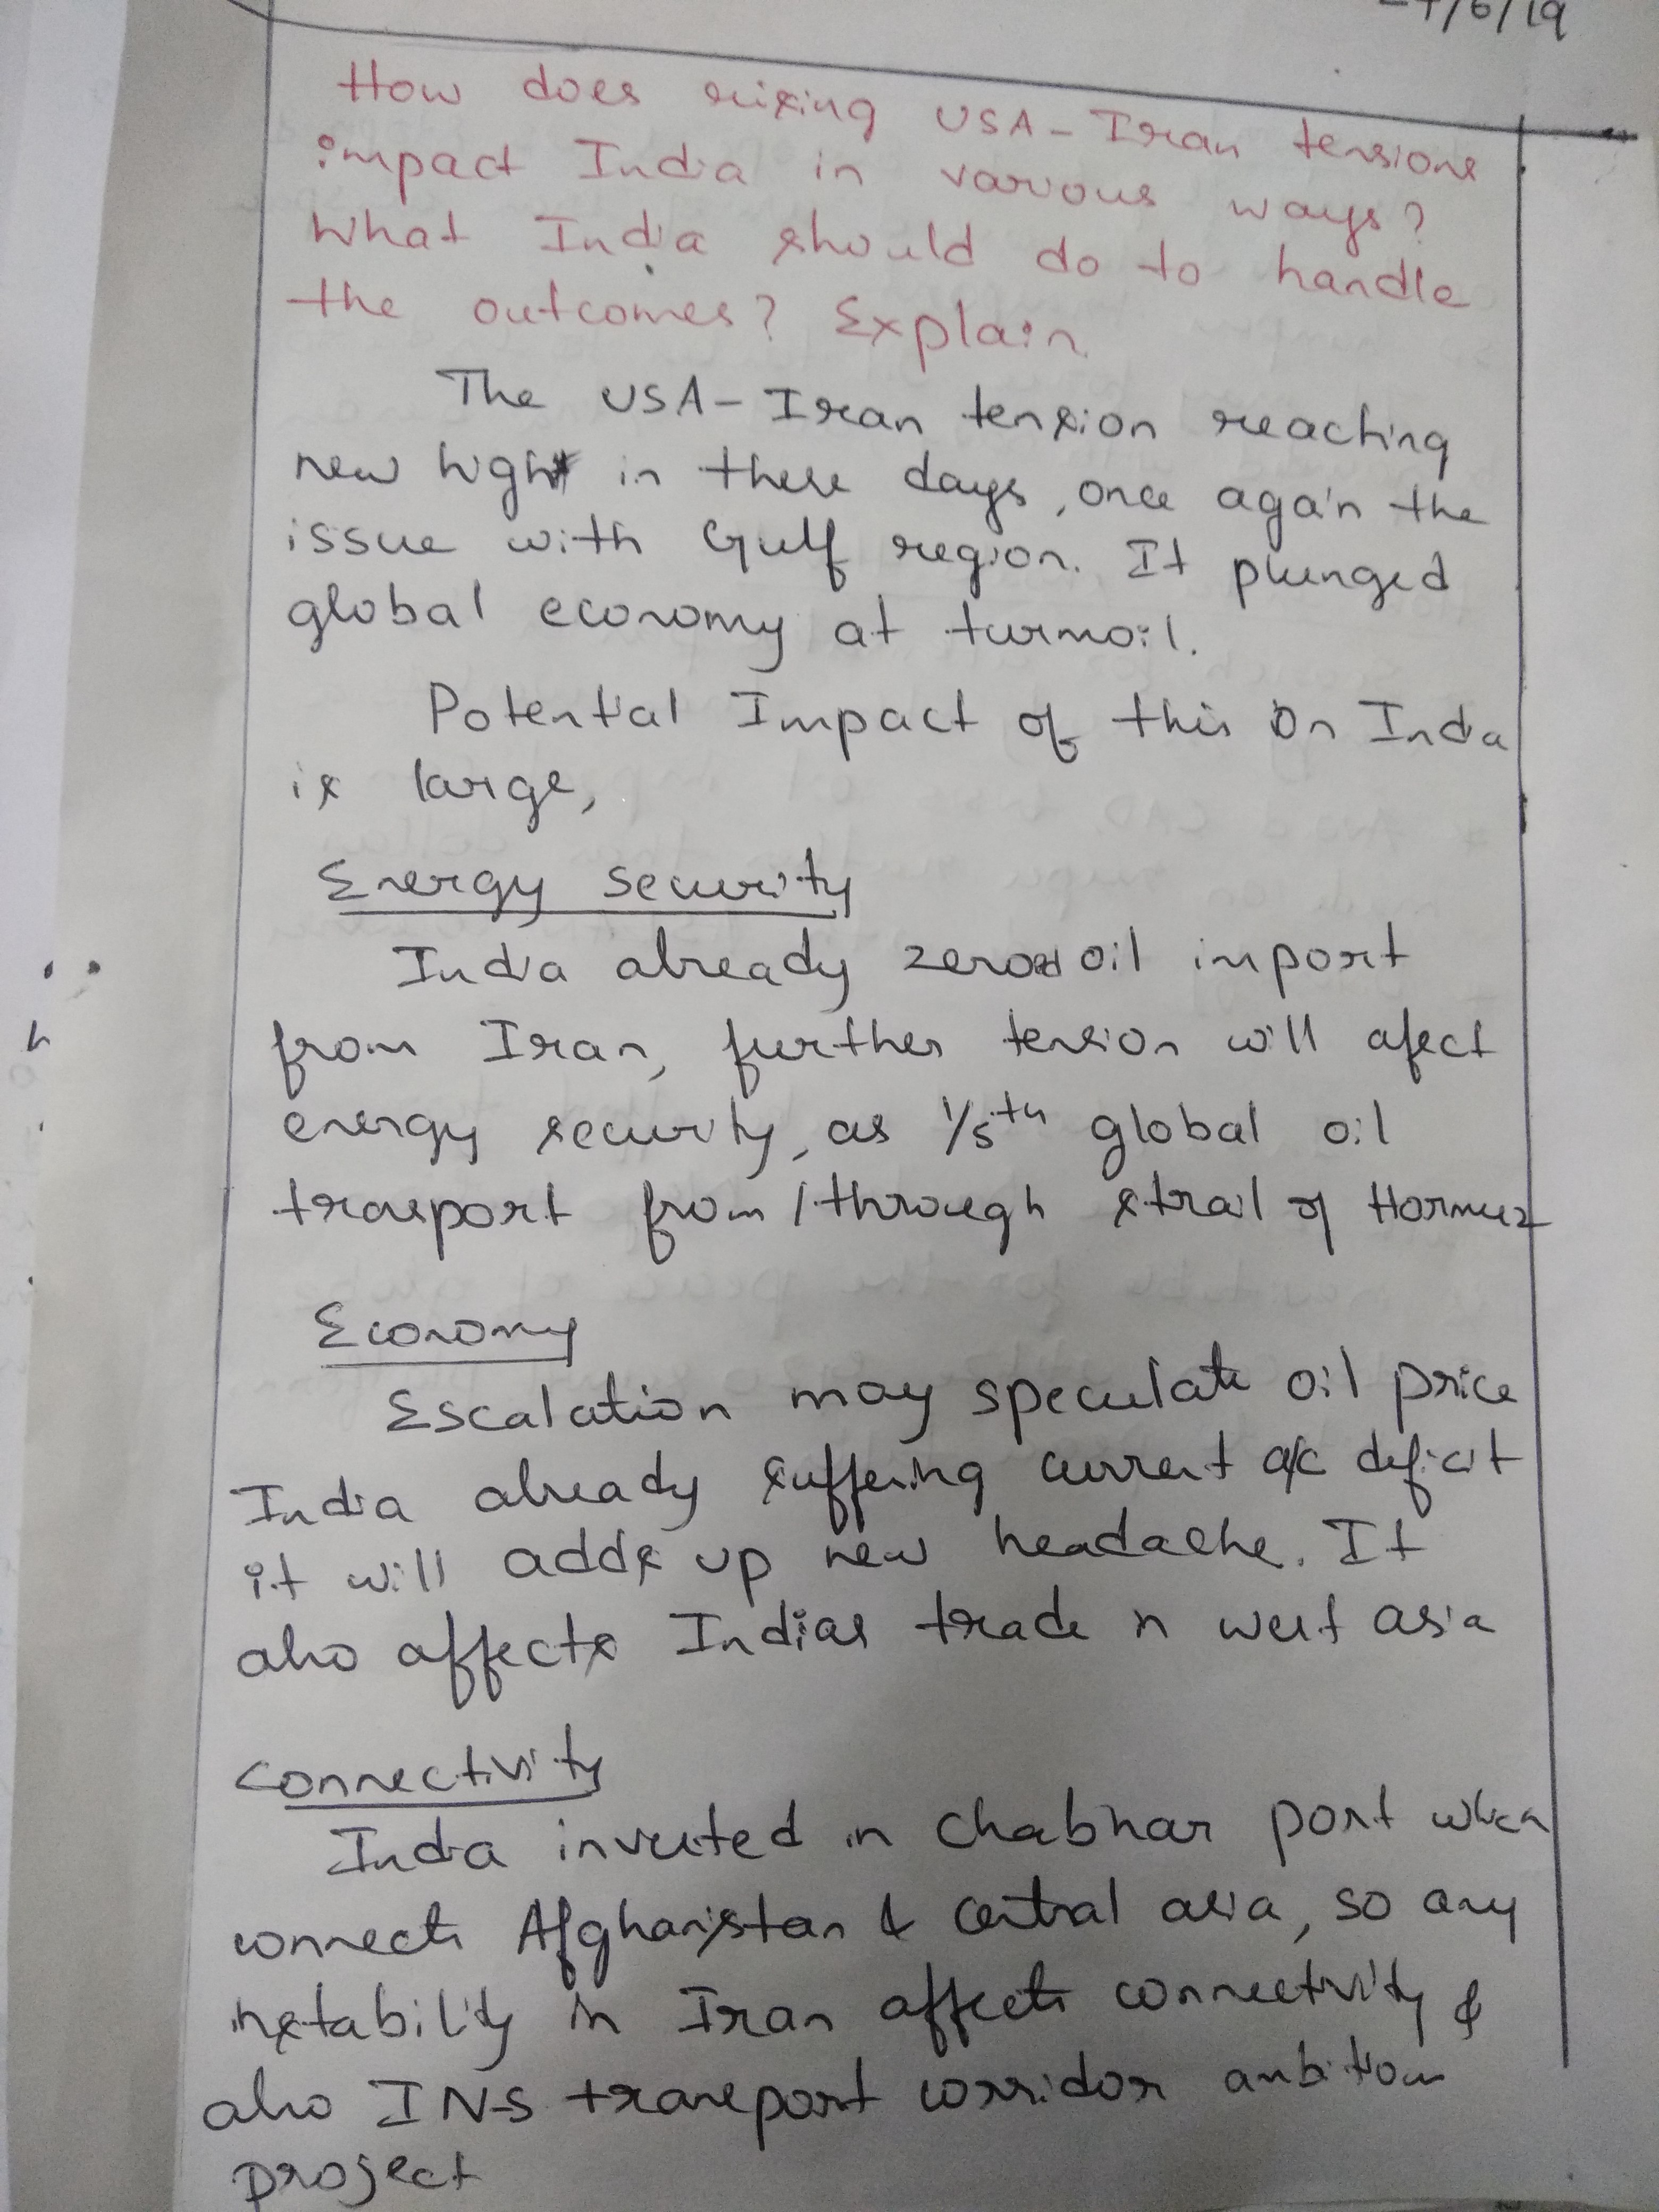 7/6/19
How does rising USA-Iran tensions
impact India in various ways?
What India should do to handle
the outcomes? Explain.
The USA-Iran tension reaching
new hight in these days, once again the
issue with Gulf region. It plunged
global economy at turmoil.
Potential Impact of this On India
is large,
Energy security
India already zero oil import
from Iran, further tension will afect
energy security, as 1/5th global oil
trasport from/through strait of Hormuz
Economy
Escalation may speculate oil price
India already suffering current a/c deficit
it will adds up new headache. It
also affects Indias trade in west asia
Connectivity
India invested in Chabhar port which
connects Afghanistan & central asia, so any
instability in Iran affects connectivity &
also INS transport corridor ambitious
project